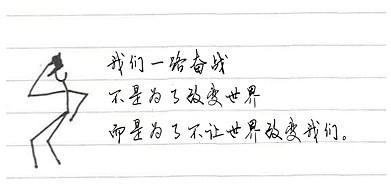 我们一路奋战
不是为了改变世界
而是为了不让世界改变我们。